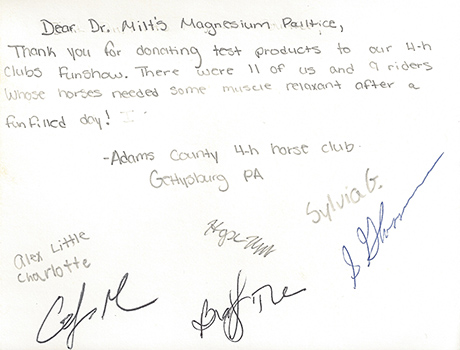 Dear Dr. Milt's Magnesium Paultice,
Thank you for donating test products to our 4-h
clubs Funshow. There were 11 of us and 9 riders
whose horses needed some muscle relaxant after a
fun filled day!
-Adams County 4-h horse club
Gettysburg PA
Sylvia G.
Alex Little
Charlotte